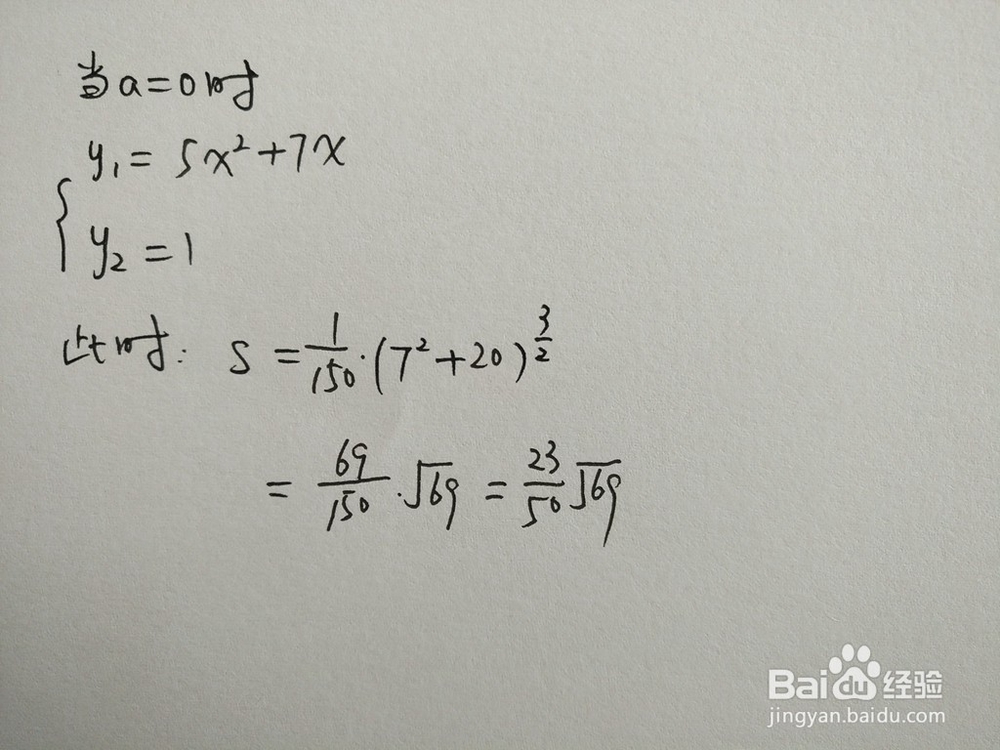 当a=0时
y₁=5x²+7x
{y₂=1
此时: S=1/150·(7²+20)^(3/2)
=69/150·√69=23/50√69
Bai du 经验
jingyan.baidu.com